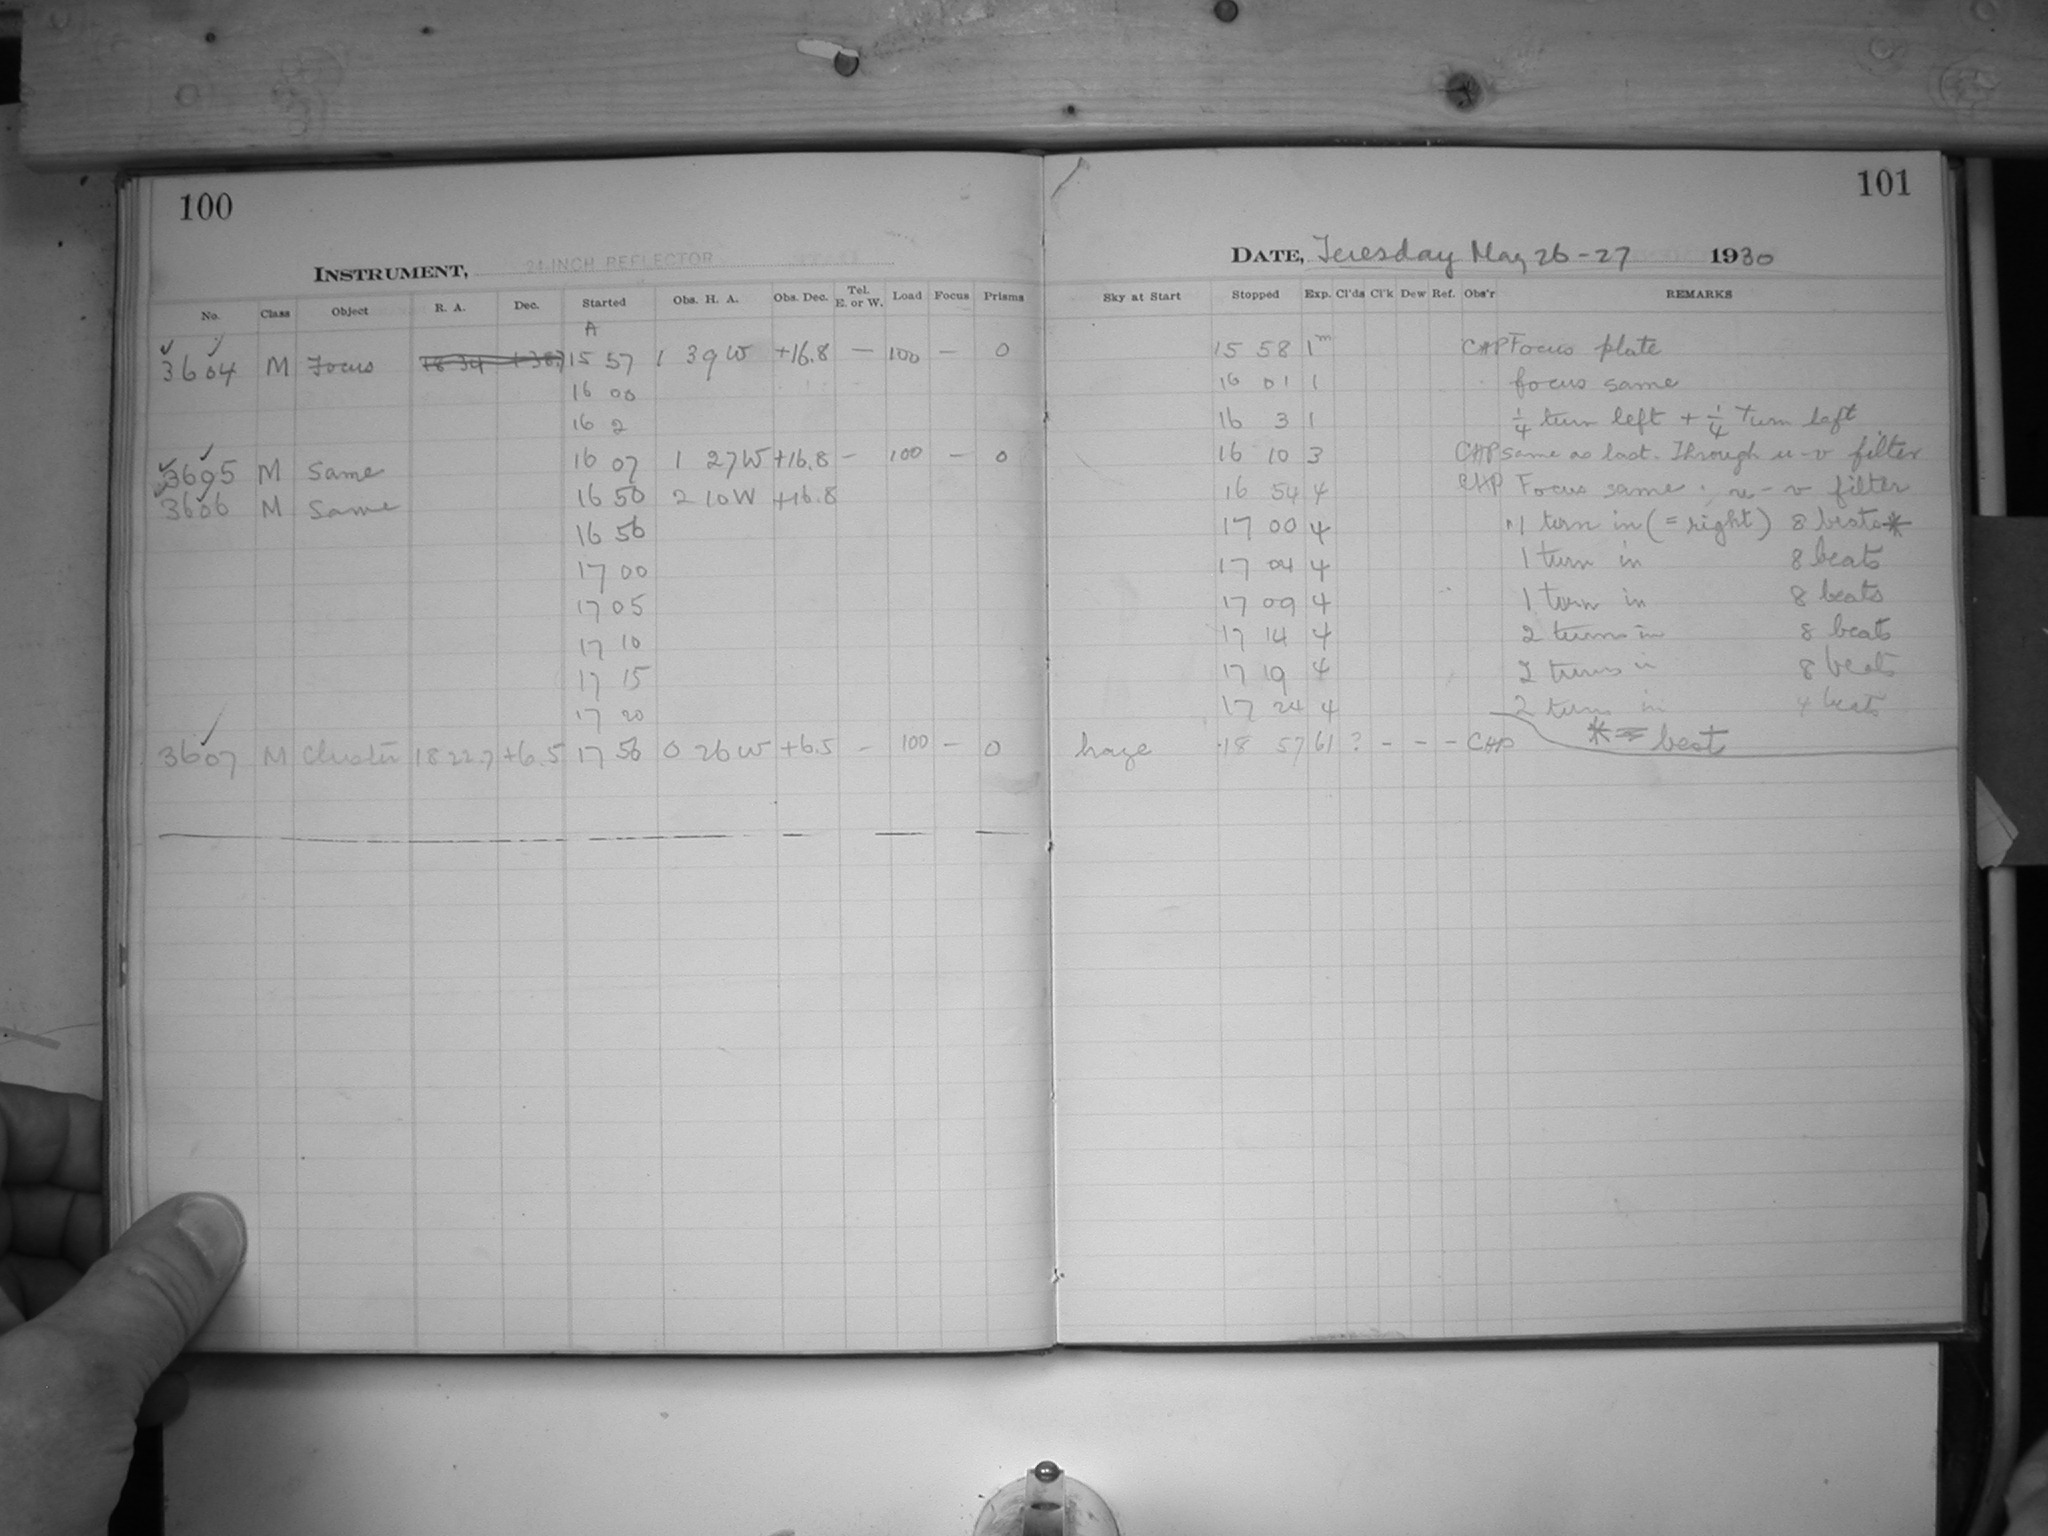 100
INSTRUMENT, 24-INCH REFLECTOR
No. Class Object R. A. Dec. Started Obs. H. A. Obs. Dec. Tel. E. or W. Load Focus Prisms
A
3604 M Focus 15 57 1 39 W +16.8 — 100 — 0
16 00
16 2
3605 M Same 16 07 1 27 W +16.8 — 100 — 0
3606 M Same 16 50 2 10 W +16.8
16 56
17 00
17 05
17 10
17 15
17 20
3607 M Cluster 18 22.7 +6.5 17 56 0 26 W +6.5 — 100 — 0
101
DATE, Tuesday May 26-27 1930
Sky at Start Stopped Exp. Cl'ds Cl'k Dew Ref. Obs'r REMARKS
15 58 1m CHP Focus plate
16 01 1 focus same
16 3 1 1/4 turn left + 1/4 turn left
16 10 3 CHP same as last. Through u-v filter
16 54 4 CHP Focus same; u-v filter
17 00 4 1 turn in (= right) 8 beats *
17 04 4 1 turn in 8 beats
17 09 4 1 turn in 8 beats
17 14 4 2 turns in 8 beats
17 19 4 2 turns in 8 beats
17 24 4 2 turns in 4 beats
* = best
haze 18 57 61 ? - - - CHP